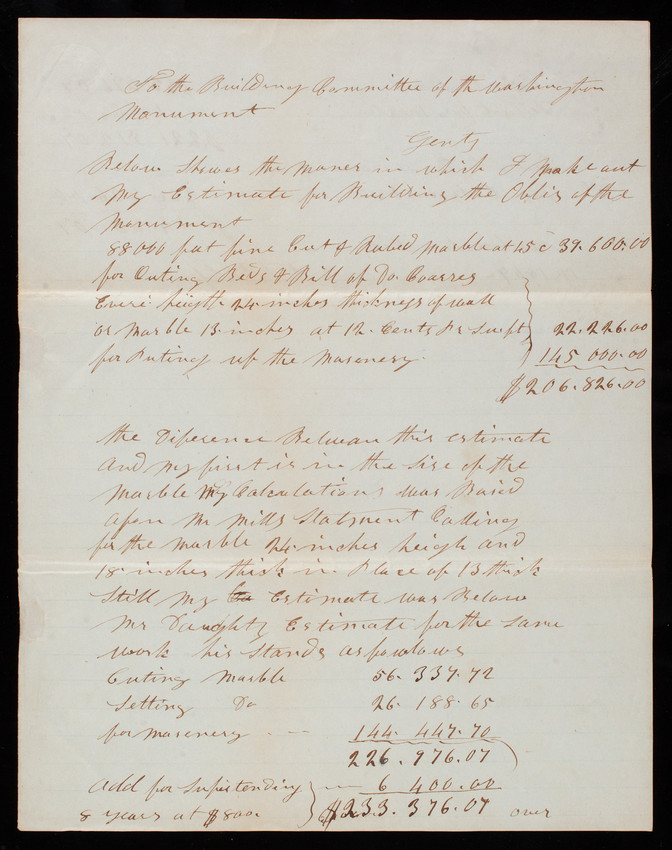 To the Building Committee of th Washington
Monument
Gents
Below Shows the Maner in which I Make out
My Estimate for Building the Oblis of the
Monument
88000 fat fine Cut & Rubed Marble at 45 c 39.600.00
for Cuting Beds & Bill of Do Coarses
Evere heigth 24 inches thickness of wall
or Marble 13 inches at 12 Cents Pr Supft 22.226.00
for Puting up the Masonery. 145 000.00
$206.826.00
the Diference Betwean this estimate
and my first is in the Sise of the
Marble My Calculations was Baisd
apon Mr Mills Statment Calling
for the Marble 24 inches heigh and
18 inches thick in Place of 13 thick
Still My Estimate was Below
Mr Daughty Estimate for the Same
work his Stands as fowlows
Cuting Marble 56.337.72
Setting Do 26.188.65
for Masonery 144.447.70
226.976.07
add for Supstending 6 400.00
8 years at $800. $233.376.07 over